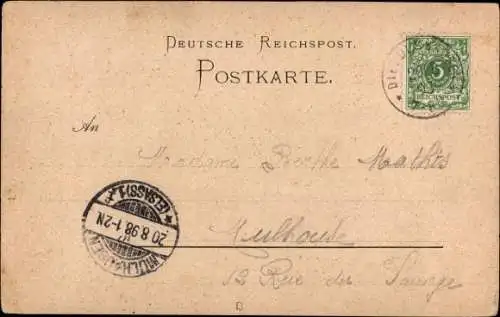 DEUTSCHE REICHSPOST.
POSTKARTE.
5
REICHSPOST
An
Madame Berthe Mathis
Mulhouse
12 Rue du Sauvage
MÜLHAUSEN
20 8 98 1-2N
(ELSASS) 1